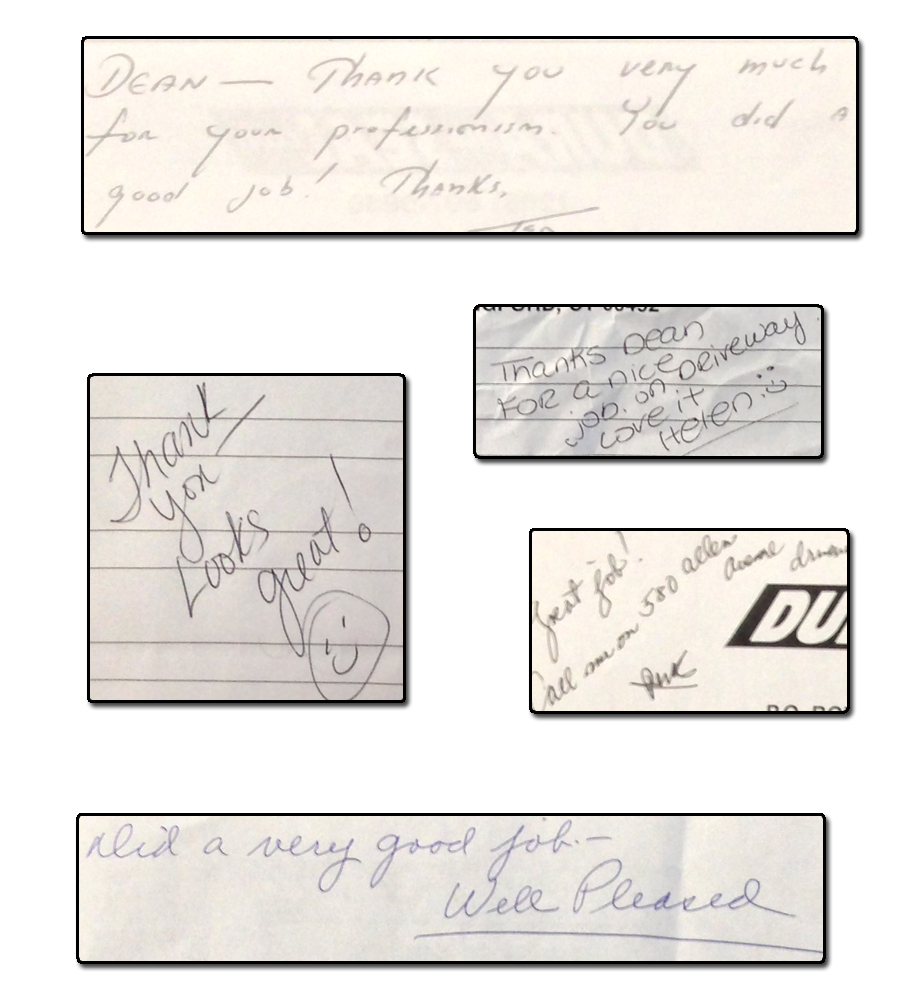 DEAN — THANK you very much
for your professionism. You did A
good job! Thanks,
Thanks Dean
FOR a nice
job on DRiveway
Love it
Helen :)
Thank
you
Looks
great!
Great job!
Call me on 580 allen
DU
P.O. BO
Did a very good job. —
Well Pleased